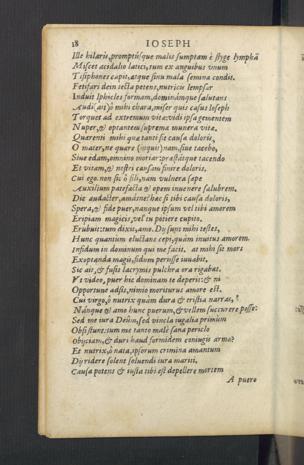 18 IOSEPH
Ille hilaris, promptúsque malis sumptam è styge lymphā
Miscet acidalio latici, tum ex anguibus vnum
Tisiphones capit, atque sinu mala semina condit.
dein tela petens, nutricis
Induit Iphicles formam, dominámque salutans
Audi (ait) ô mihi chara, miser quis casus Ioseph
Torquet ad extremum vitæ: vidi ipsa gementem
Nuper, & optantem suprema munera vitæ.
Quærenti mihi quæ tanti sit causa doloris,
O mater, ne quære (inquit) nam, siue tacebo,
Siue edam, omnino moriar: præstátque tacendo
Et vitam, & nostri causam finire doloris.
Cui ego. non sic ô fili, nam vulnera sæpe
Auxilium patefacta & opem inuenere salubrem.
Dic audacter, amásne? hæc si tibi causa doloris,
Spera, & fide puer, nanque ipsum vel tibi amorem
Eripiam magicis, vel tu potiere cupito.
Erubuit: tum dixit, amo. Dij sunt mihi testes,
Hunc quantum eluctans cepi, quàm inuitus amorem.
Infidum in dominum qui me facit, at mihi sit mors
Exoptanda magis, fidum periisse iuuabit,
Sic ait, & fusis lacrymis pulchra ora rigabat.
Vt video, puer hic dominam te deperit: & ni
Opportune adsis, nimio moriturus amore est.
Cui virgo, ô nutrix quàm dura & tristia narras,
Nánque & amo hunc puerum, & vellem succurrere posse:
Sed me iura Deûm, sed vincla iugalia primùm
Obsistunt: tum me tanto malè sana periclo
Obijciam, & duri haud formidem coniugis arma?
Et nutrix, ô nata, ipsorum crimina amantum
Dij ridere solent soluendi iura mariti,
Causa potens & iusta tibi est depellere mortem
A puero